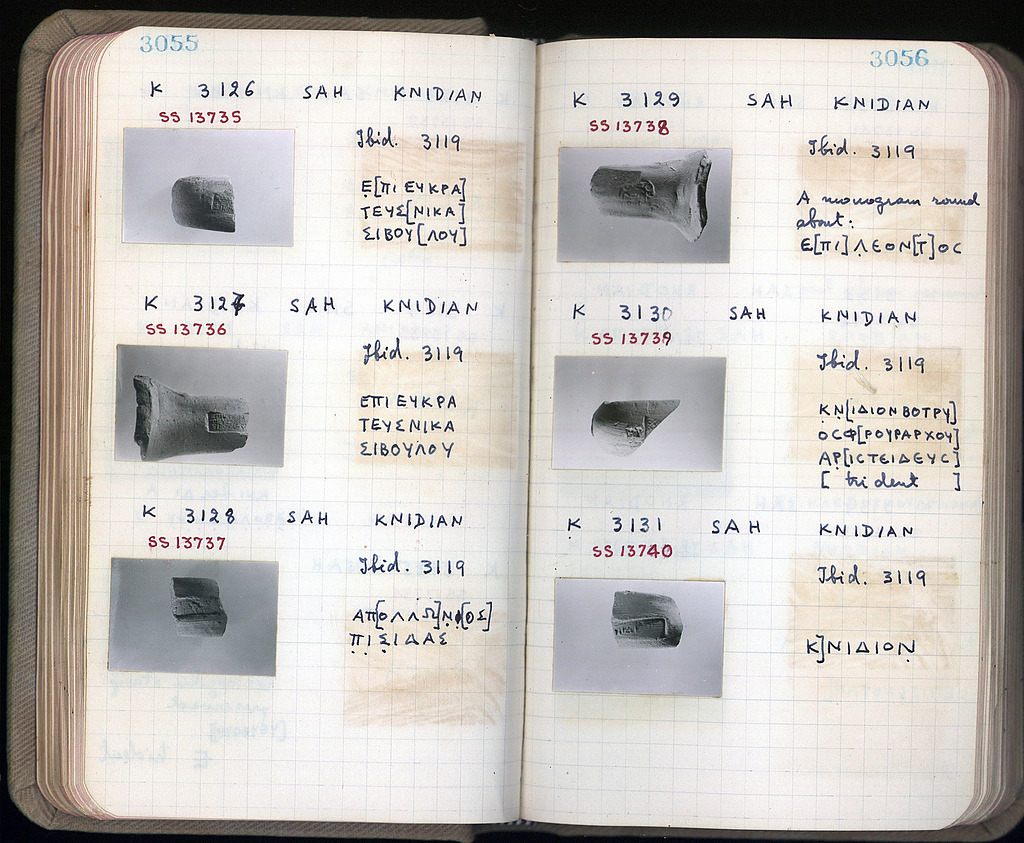 3055
K 3126 SAH KNIDIAN
SS 13735
Ibid. 3119
Ε[ΠΙ ΕΥΚΡΑ]
ΤΕΥΣ[ΝΙΚΑ]
ΣΙΒΟΥ[ΛΟΥ]
K 3127 SAH KNIDIAN
SS 13736
Ibid. 3119
ΕΠΙ ΕΥΚΡΑ
ΤΕΥΣΝΙΚΑ
ΣΙΒΟΥΛΟΥ
K 3128 SAH KNIDIAN
SS 13737
Ibid. 3119
ΑΠ[ΟΛΛΩ]ΝΙ[ΟΣ]
ΠΙΣΙΔΑΣ
3056
K 3129 SAH KNIDIAN
SS 13738
Ibid. 3119
A monogram round
about:
Ε[ΠΙ] ΛΕΟΝ[Τ]ΟC
K 3130 SAH KNIDIAN
SS 13739
Ibid. 3119
ΚΝ[ΙΔΙΟΝ ΒΟΤΡΥ]
ΟCΦ[ΡΟΥΡΑΡΧΟΥ]
ΑΡ[ΙCΤΕΙΔΕΥC]
[ trident ]
K 3131 SAH KNIDIAN
SS 13740
Ibid. 3119
Κ]ΝΙΔΙΟΝ